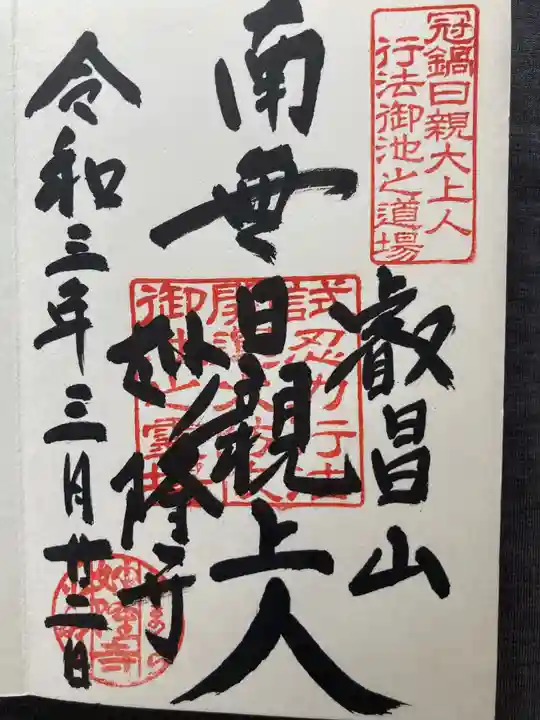 冠鍋日親大上人
行法御池之道場
叡昌山
南無日親上人
妙隆寺
令和三年三月廿二日